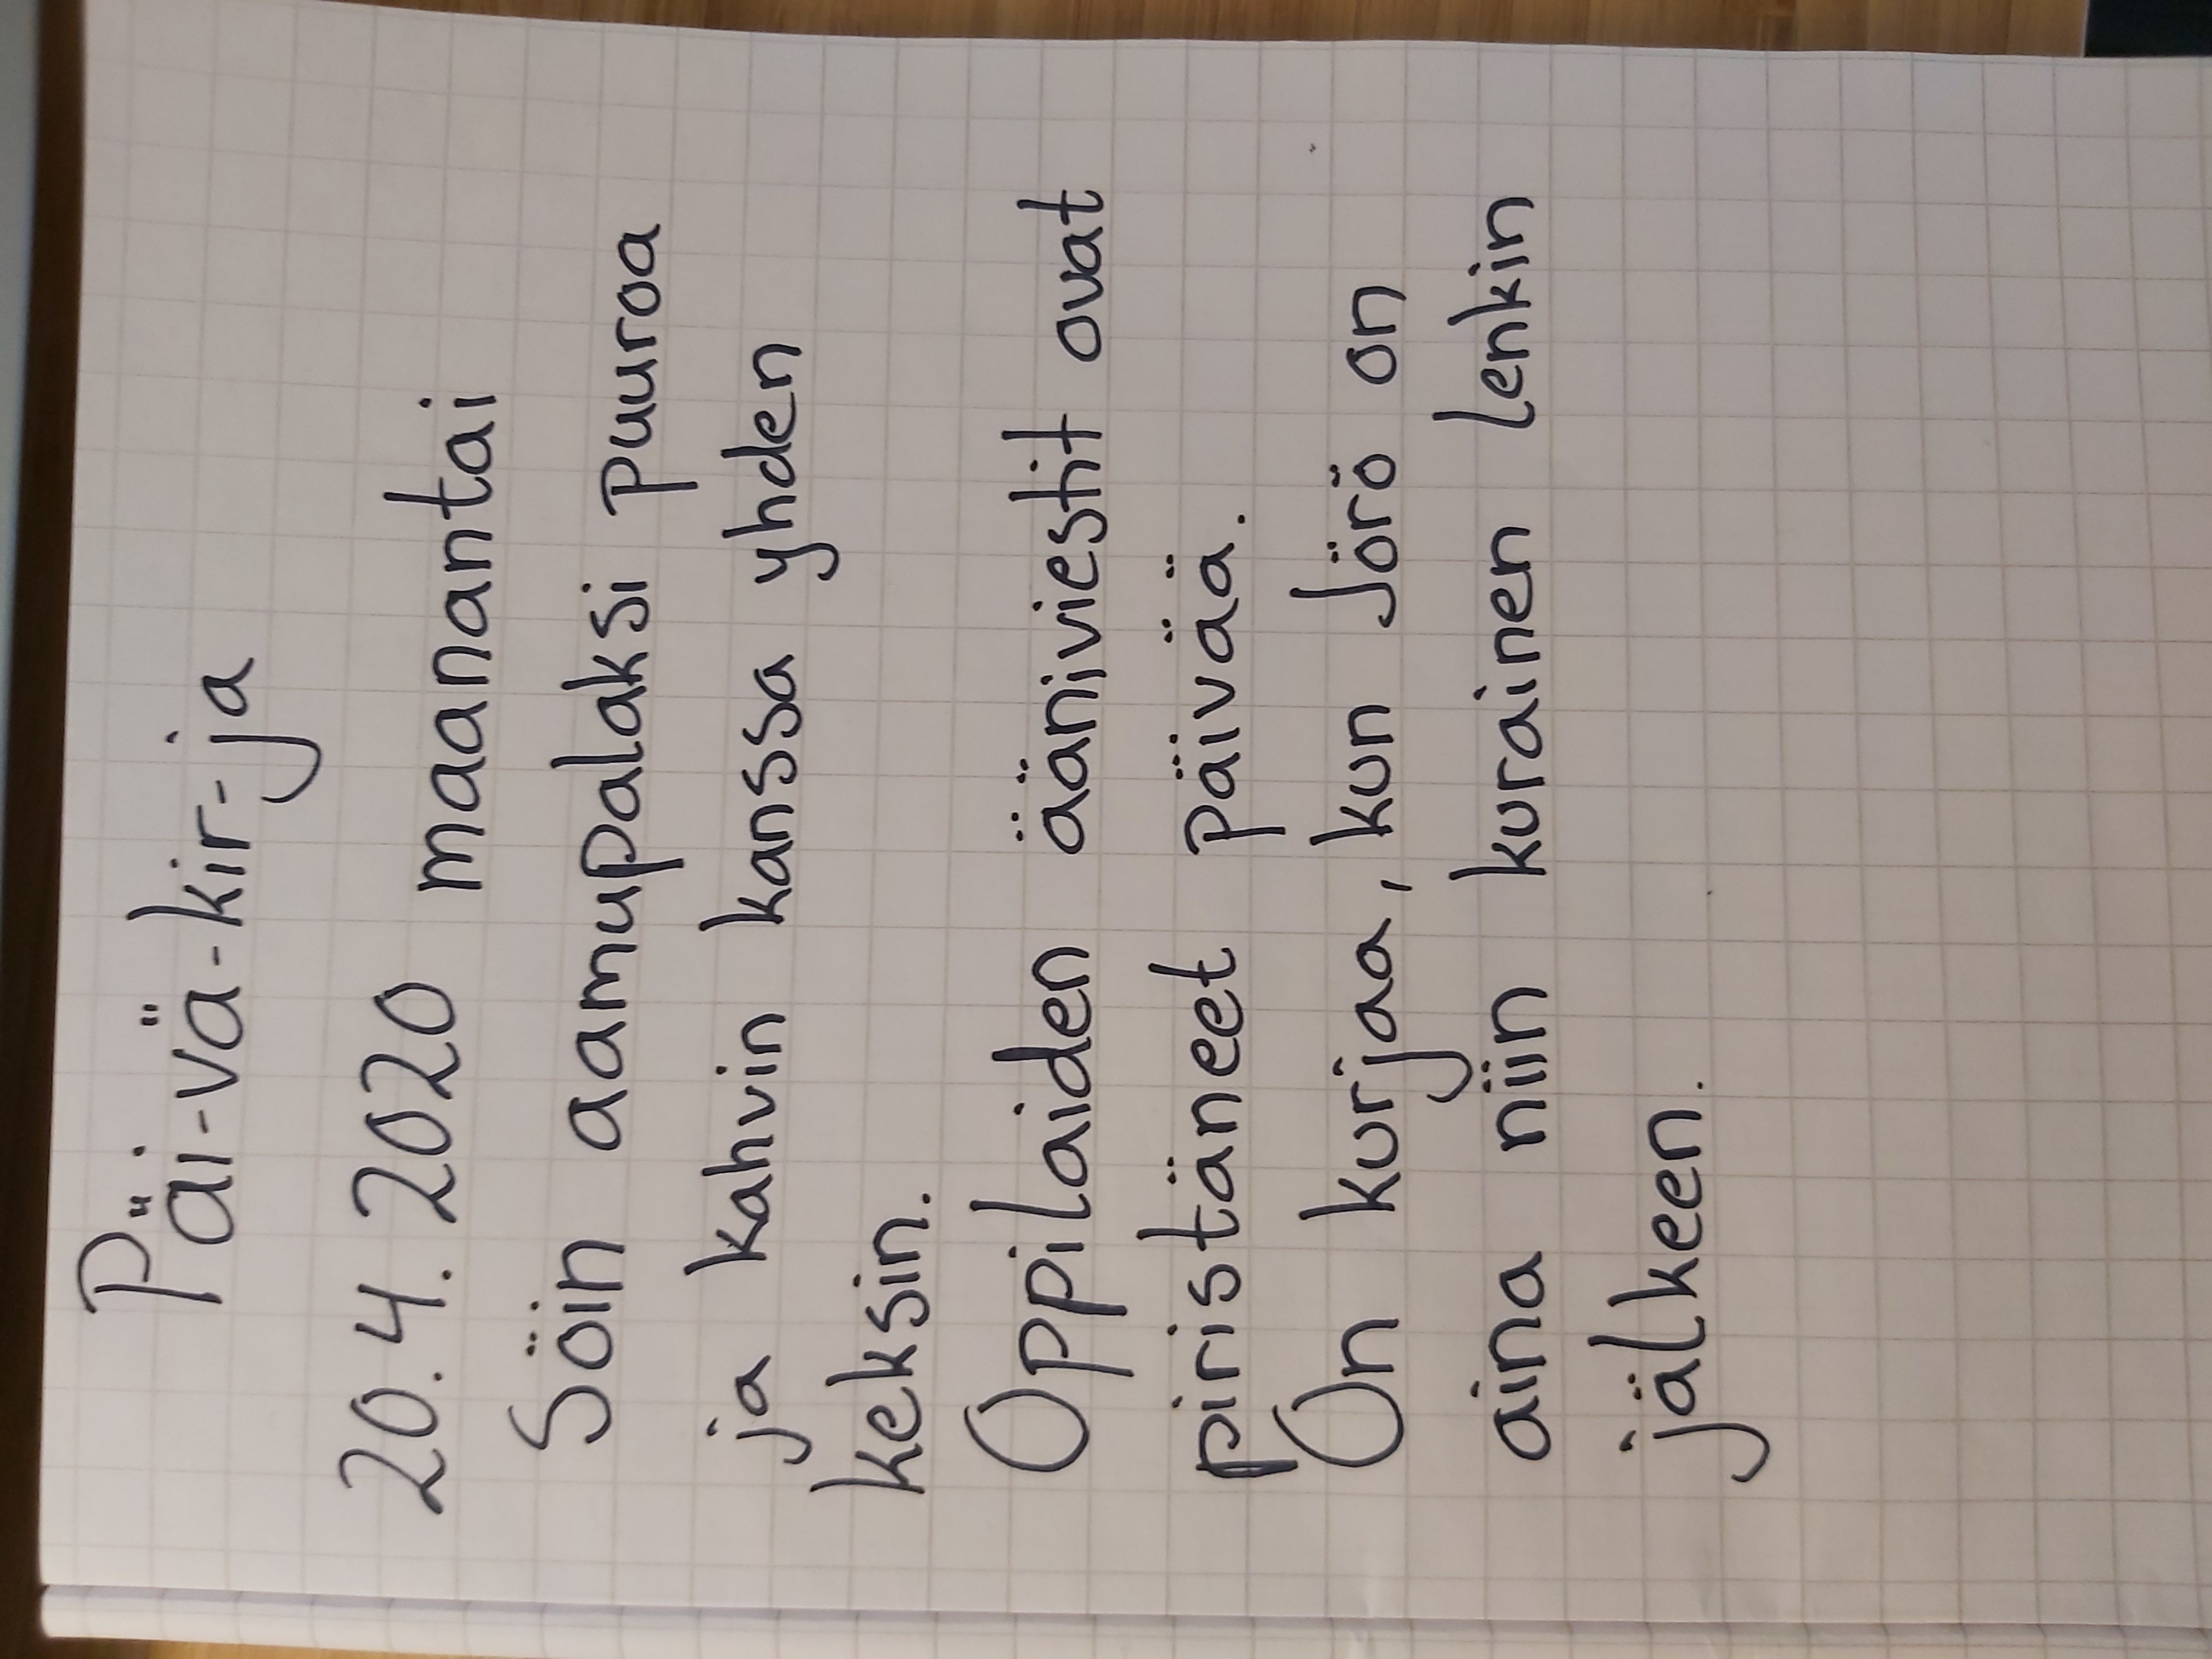 Päi-vä-kir-ja
20.4.2020 maanantai
Söin aamupalaksi puuroa
ja kahvin kanssa yhden
keksin.
Oppilaiden ääniviestit ovat
piristäneet päivää.
On kurjaa, kun Jörö on
aina niin kurainen lenkin
jälkeen.